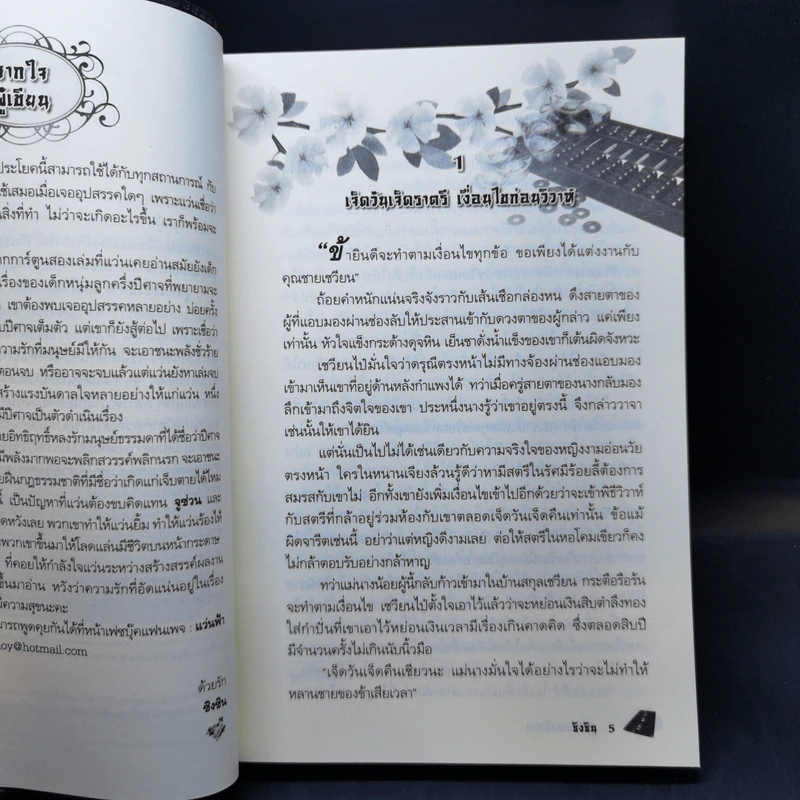 จากใจ
ผู้เขียน
ประโยคนี้สามารถใช้ได้กับทุกสถานการณ์ กับ
ใช้เสมอเมื่อเจออุปสรรคใดๆ เพราะแว่นเชื่อว่า
นสิ่งที่ทำ ไม่ว่าจะเกิดอะไรขึ้น เราก็พร้อมจะ
ากการ์ตูนสองเล่มที่แว่นเคยอ่านสมัยยังเด็ก
เรื่องของเด็กหนุ่มลูกครึ่งปีศาจที่พยายามจะ
เขาต้องพบเจออุปสรรคหลายอย่าง บ่อยครั้ง
บปีศาจเต็มตัว แต่เขาก็ยังสู้ต่อไป เพราะเชื่อว่า
ความรักที่มนุษย์มีให้กัน จะเอาชนะพลังชั่วร้าย
ตอนจบ หรืออาจจะจบแล้วแต่แว่นยังหาเล่มจบ
สร้างแรงบันดาลใจหลายอย่างให้แก่แว่น หนึ่ง
มีปีศาจเป็นตัวดำเนินเรื่อง
ายอิทธิฤทธิ์หลงรักมนุษย์ธรรมดาที่ได้ชื่อว่าปีศาจ
มีพลังมากพอจะพลิกสวรรค์พลิกนรก จะเอาชนะ
ยฝืนกฎธรรมชาติที่มีชื่อว่าเกิดแก่เจ็บตายได้ไหม
นี้ เป็นปัญหาที่แว่นต้องขบคิดแทน จูซ่วน และ
ดหวังเลย พวกเขาทำให้แว่นยิ้ม ทำให้แว่นร้องไห้
พวกเขาขึ้นมาให้โลดแล่นมีชีวิตบนหน้ากระดาษ
ที่คอยให้กำลังใจแว่นระหว่างสร้างสรรค์ผลงาน
ขึ้นมาอ่าน หวังว่าความรักที่อัดแน่นอยู่ในเรื่อง
มีความสุขนะคะ
มารถพูดคุยกันได้ที่หน้าเฟซบุ๊คแฟนเพจ : แว่นฟ้า
oy@hotmail.com
ด้วยรัก
ซิงซิน
1
เจ็ดวันเจ็ดราตรี เงื่อนไขก่อนวิวาห์
“ข้ายินดีจะทำตามเงื่อนไขทุกข้อ ขอเพียงได้แต่งงานกับ
คุณชายเชวียน”
ถ้อยคำหนักแน่นจริงจังราวกับเส้นเชือกล่องหน ดึงสายตาของ
ผู้ที่แอบมองผ่านช่องลับให้ประสานเข้ากับดวงตาของผู้กล่าว แค่เพียง
เท่านั้น หัวใจแข็งกระด้างดุจหิน เย็นชาดั่งน้ำแข็งของเขาก็เต้นผิดจังหวะ
เชวียนไป๋มั่นใจว่าดรุณีตรงหน้าไม่มีทางจ้องผ่านช่องแอบมอง
เข้ามาเห็นเขาที่อยู่ด้านหลังกำแพงได้ ทว่าเมื่อครู่สายตาของนางกลับมอง
ลึกเข้ามาถึงจิตใจของเขา ประหนึ่งนางรู้ว่าเขาอยู่ตรงนี้ จึงกล่าววาจา
เช่นนั้นให้เขาได้ยิน
แต่นั่นเป็นไปไม่ได้เช่นเดียวกับความจริงใจของหญิงงามอ่อนวัย
ตรงหน้า ใครในหนานเจียงล้วนรู้ดีว่าหามีสตรีในรัศมีร้อยลี้ต้องการ
สมรสกับเขาไม่ อีกทั้งเขายังเพิ่มเงื่อนไขเข้าไปอีกด้วยว่าจะเข้าพิธีวิวาห์
กับสตรีที่กล้าอยู่ร่วมห้องกับเขาตลอดเจ็ดวันเจ็ดคืนเท่านั้น ข้อแม้
ผิดจารีตเช่นนี้ อย่าว่าแต่หญิงดีงามเลย ต่อให้สตรีในหอโคมเขียวก็คง
ไม่กล้าตอบรับอย่างกล้าหาญ
ทว่าแม่นางน้อยผู้นี้กลับก้าวเข้ามาในบ้านสกุลเชวียน กระตือรือร้น
จะทำตามเงื่อนไข เชวียนไป๋ตั้งใจเอาไว้แล้วว่าจะหย่อนเงินสิบตำลึงทอง
ใส่กำปั่นที่เขาเอาไว้หย่อนเงินเวลามีเรื่องเกินคาดคิด ซึ่งตลอดสิบปี
มีจำนวนครั้งไม่เกินนับนิ้วมือ
“เจ็ดวันเจ็ดคืนเชียวนะ แม่นางมั่นใจได้อย่างไรว่าจะไม่ทำให้
หลานชายของข้าเสียเวลา”
ซิงซิน 5